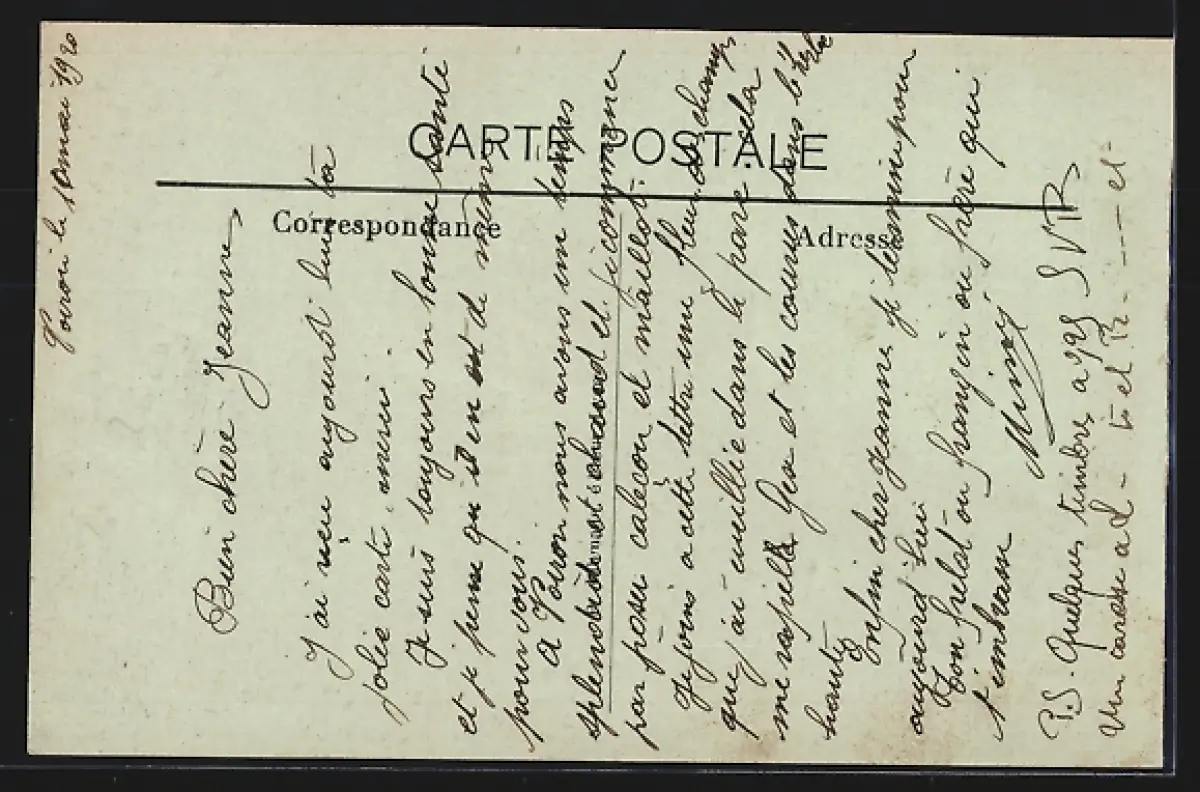 CARTE POSTALE
Correspondance
Adresse
le 10 mai 1920
Bien chère Jeanne,
J'ai reçu aujourd'hui ta
jolie carte, merci.
Je suis toujours en bonne santé
et je pense qu'il en est de même
pour vous.
A nous avons un temps
splendide et chaud et je commence
par poser caleçon et maillot.
Je joins a cette lettre une fleur des champs
que j'ai cueillie dans le parc. Cela
me rappelle Gex et les courses dans l'herbe
haute,
Enfin cher Jeanne je termine pour
aujourd'hui
Ton frangin ou frère qui
t'embrasse
P.S. Quelques timbres SVP
Un